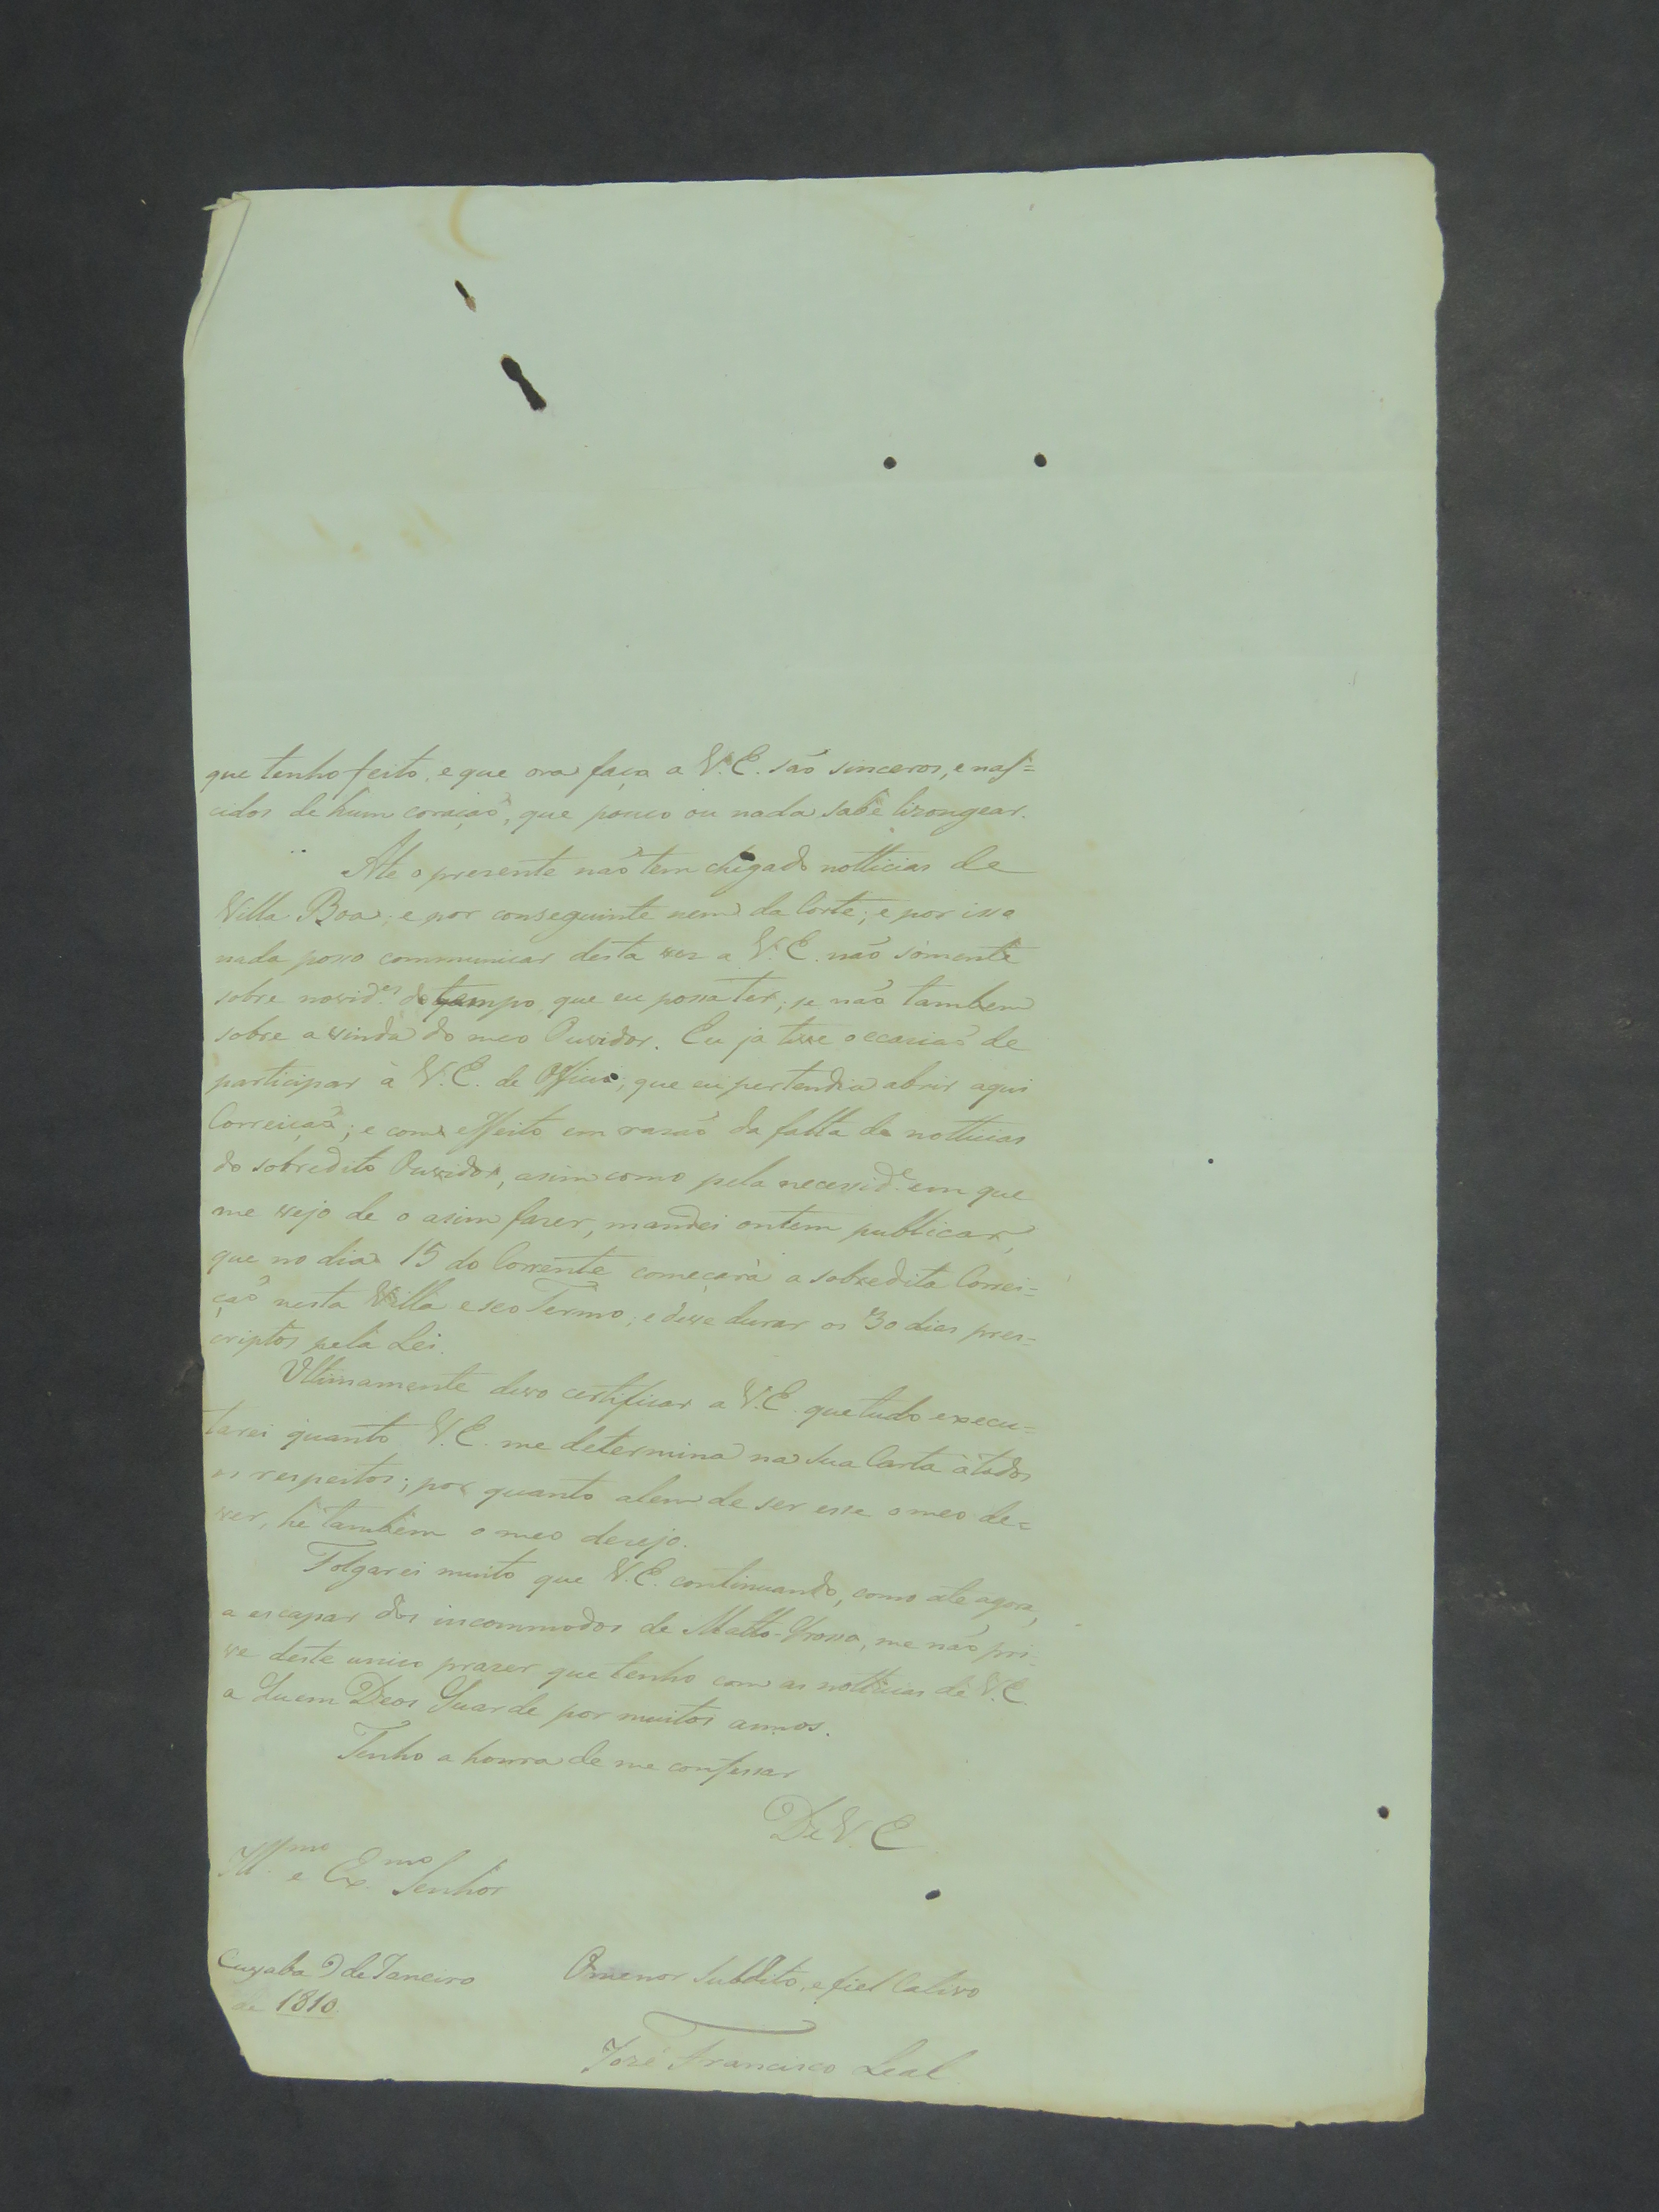 que tenho feito, e que ora faço a V. E. são sinceros, e nas=
cidos de hum coração, que pouco ou nada sabe lizongear.
Ate o prezente não tem chegado notticias de
Villa Boa; e por conseguinte nem da Corte; e por isso
nada posso communicar desta vez a V. E. não sòmente
sobre novid.es de tempo, que eu possa ter; se não tambem
sobre a vinda do meo Ouvidor. Eu ja tive occazião de
participar à V. E. de Officio, que eu pertendia abrir aqui
Correição; e com effeito em razão da falta de notticias
do sobredito Ouvidor, asim como pela necessid.e em que
me vejo de o asim fazer, mandei ontem publicar,
que no dia 15 do Corrente começarà a sobredita Correi=
ção nesta Villa e seo Termo; e deve durar os 30 dias pres=
criptos pela Lei.
Ultimamente devo certificar a V. E. que tudo execu=
tarei quanto V. E. me determina na sua Carta à todos
os respeitos; por quanto alem de ser esse o meo de=
ver, hê tambem o meo dezejo.
Folgarei muito que V. E. continuando, como ate agora,
a escapar dos incommodos de Matto-Grosso, me não pri=
ve deste unico prazer que tenho com as notticias de V. E.
a Quem Deos Guarde por muitos annos.
Tenho a honra de me confessar
De V. E.
Ill.mo e Ex.mo Senhor
Cuyaba 9 de Janeiro
de 1810.
O menor Subdito, e fiel Cativo
Jozé Francisco Leal